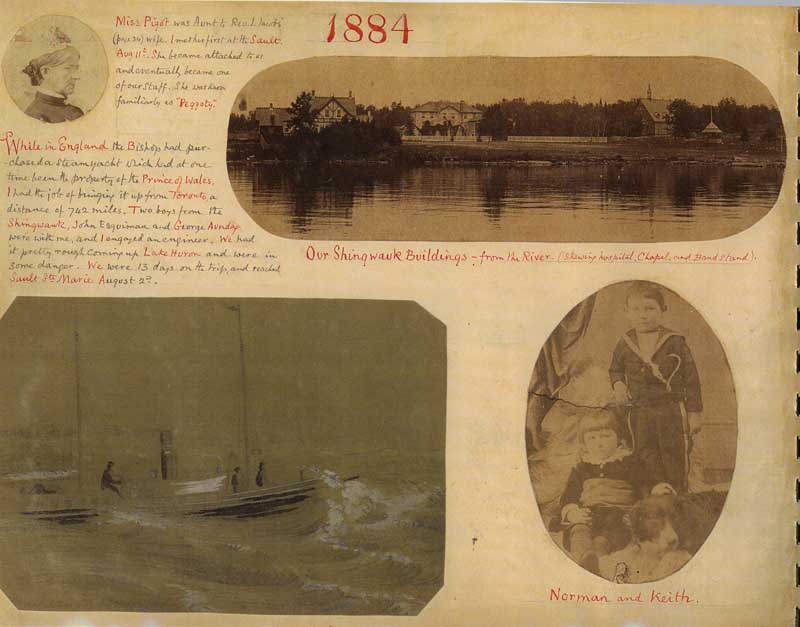 Miss Pigot was Aunt to Rev. I. Jacobs'
(page 20) wife. I met her first at the Sault.
Aug 11th. She became attached to us
and eventually became one
of our Staff. She was known
familiarly as "Peggoty."
1884
While in England the Bishop had pur-
-chased a steam yacht which had at one
time been the property of the Prince of Wales.
I had the job of bringing it up from Toronto a
distance of 742 miles. Two boys from the
Shingwauk, John Esquimau and George
were with me, and I engaged an engineer. We had
it pretty rough coming up Lake Huron and were in
some danger. We were 13 days on the trip, and reached
Sault Ste Marie August 2d.
Our Shingwauk Buildings - from the River. (Shewing hospital, Chapel, and Band Stand).
Norman and Keith.